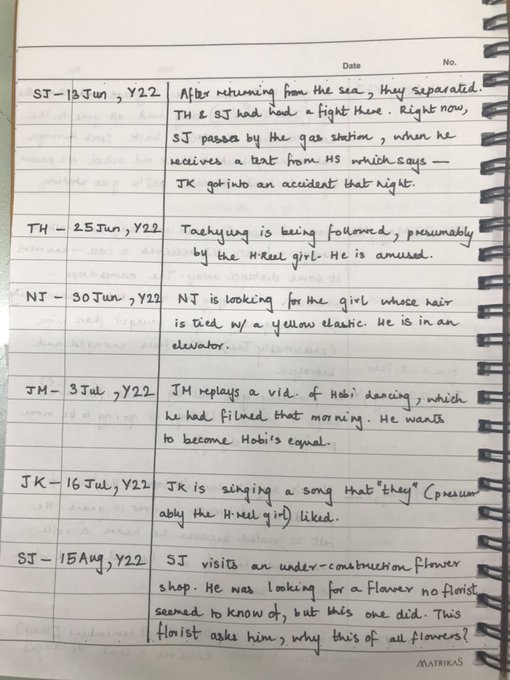 Date No.
SJ - 13 Jun, Y22 After returning from the sea, they separated.
TH & SJ had had a fight there. Right now,
SJ passes by the gas station, when he
receives a text from HS which says —
JK got into an accident that night.
TH - 25 Jun, Y22 Taehyung is being followed, presumably
by the H.Reel girl. He is amused.
NJ - 30 Jun, Y22 NJ is looking for the girl whose hair
is tied w/ a yellow elastic. He is in an
elevator.
JM - 3 Jul, Y22 JM replays a vid. of Hobi dancing, which
he had filmed that morning. He wants
to become Hobi's equal.
JK - 16 Jul, Y22 JK is singing a song that "they" (presum
ably the H.Reel girl) liked.
SJ - 15 Aug, Y22 SJ visits an under-construction flower
shop. He was looking for a flower no florist
seemed to know of, but this one did. This
florist asks him, why this of all flowers?
MATRIKAS